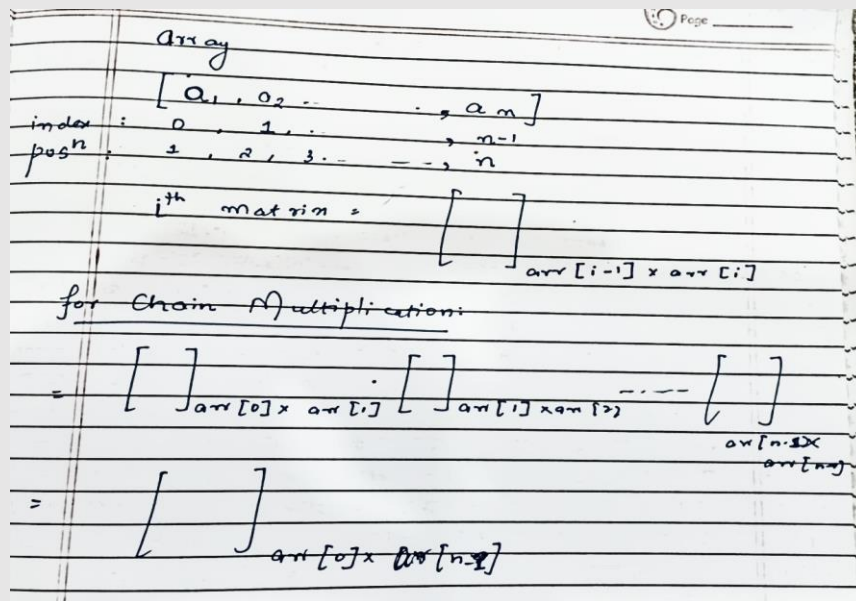 Page
Array
[a1, a2 .. ., an]
index : 0, 1, .. , n-1
posn : 1, 2, 3.. --, n
ith matrix = [ ] arr[i-1] x arr[i]
for Chain Multiplication:
= [ ] arr[0] x arr[1] . [ ] arr[1] x arr[2] ----- [ ]
= [ ] arr[0] x arr[n-1]